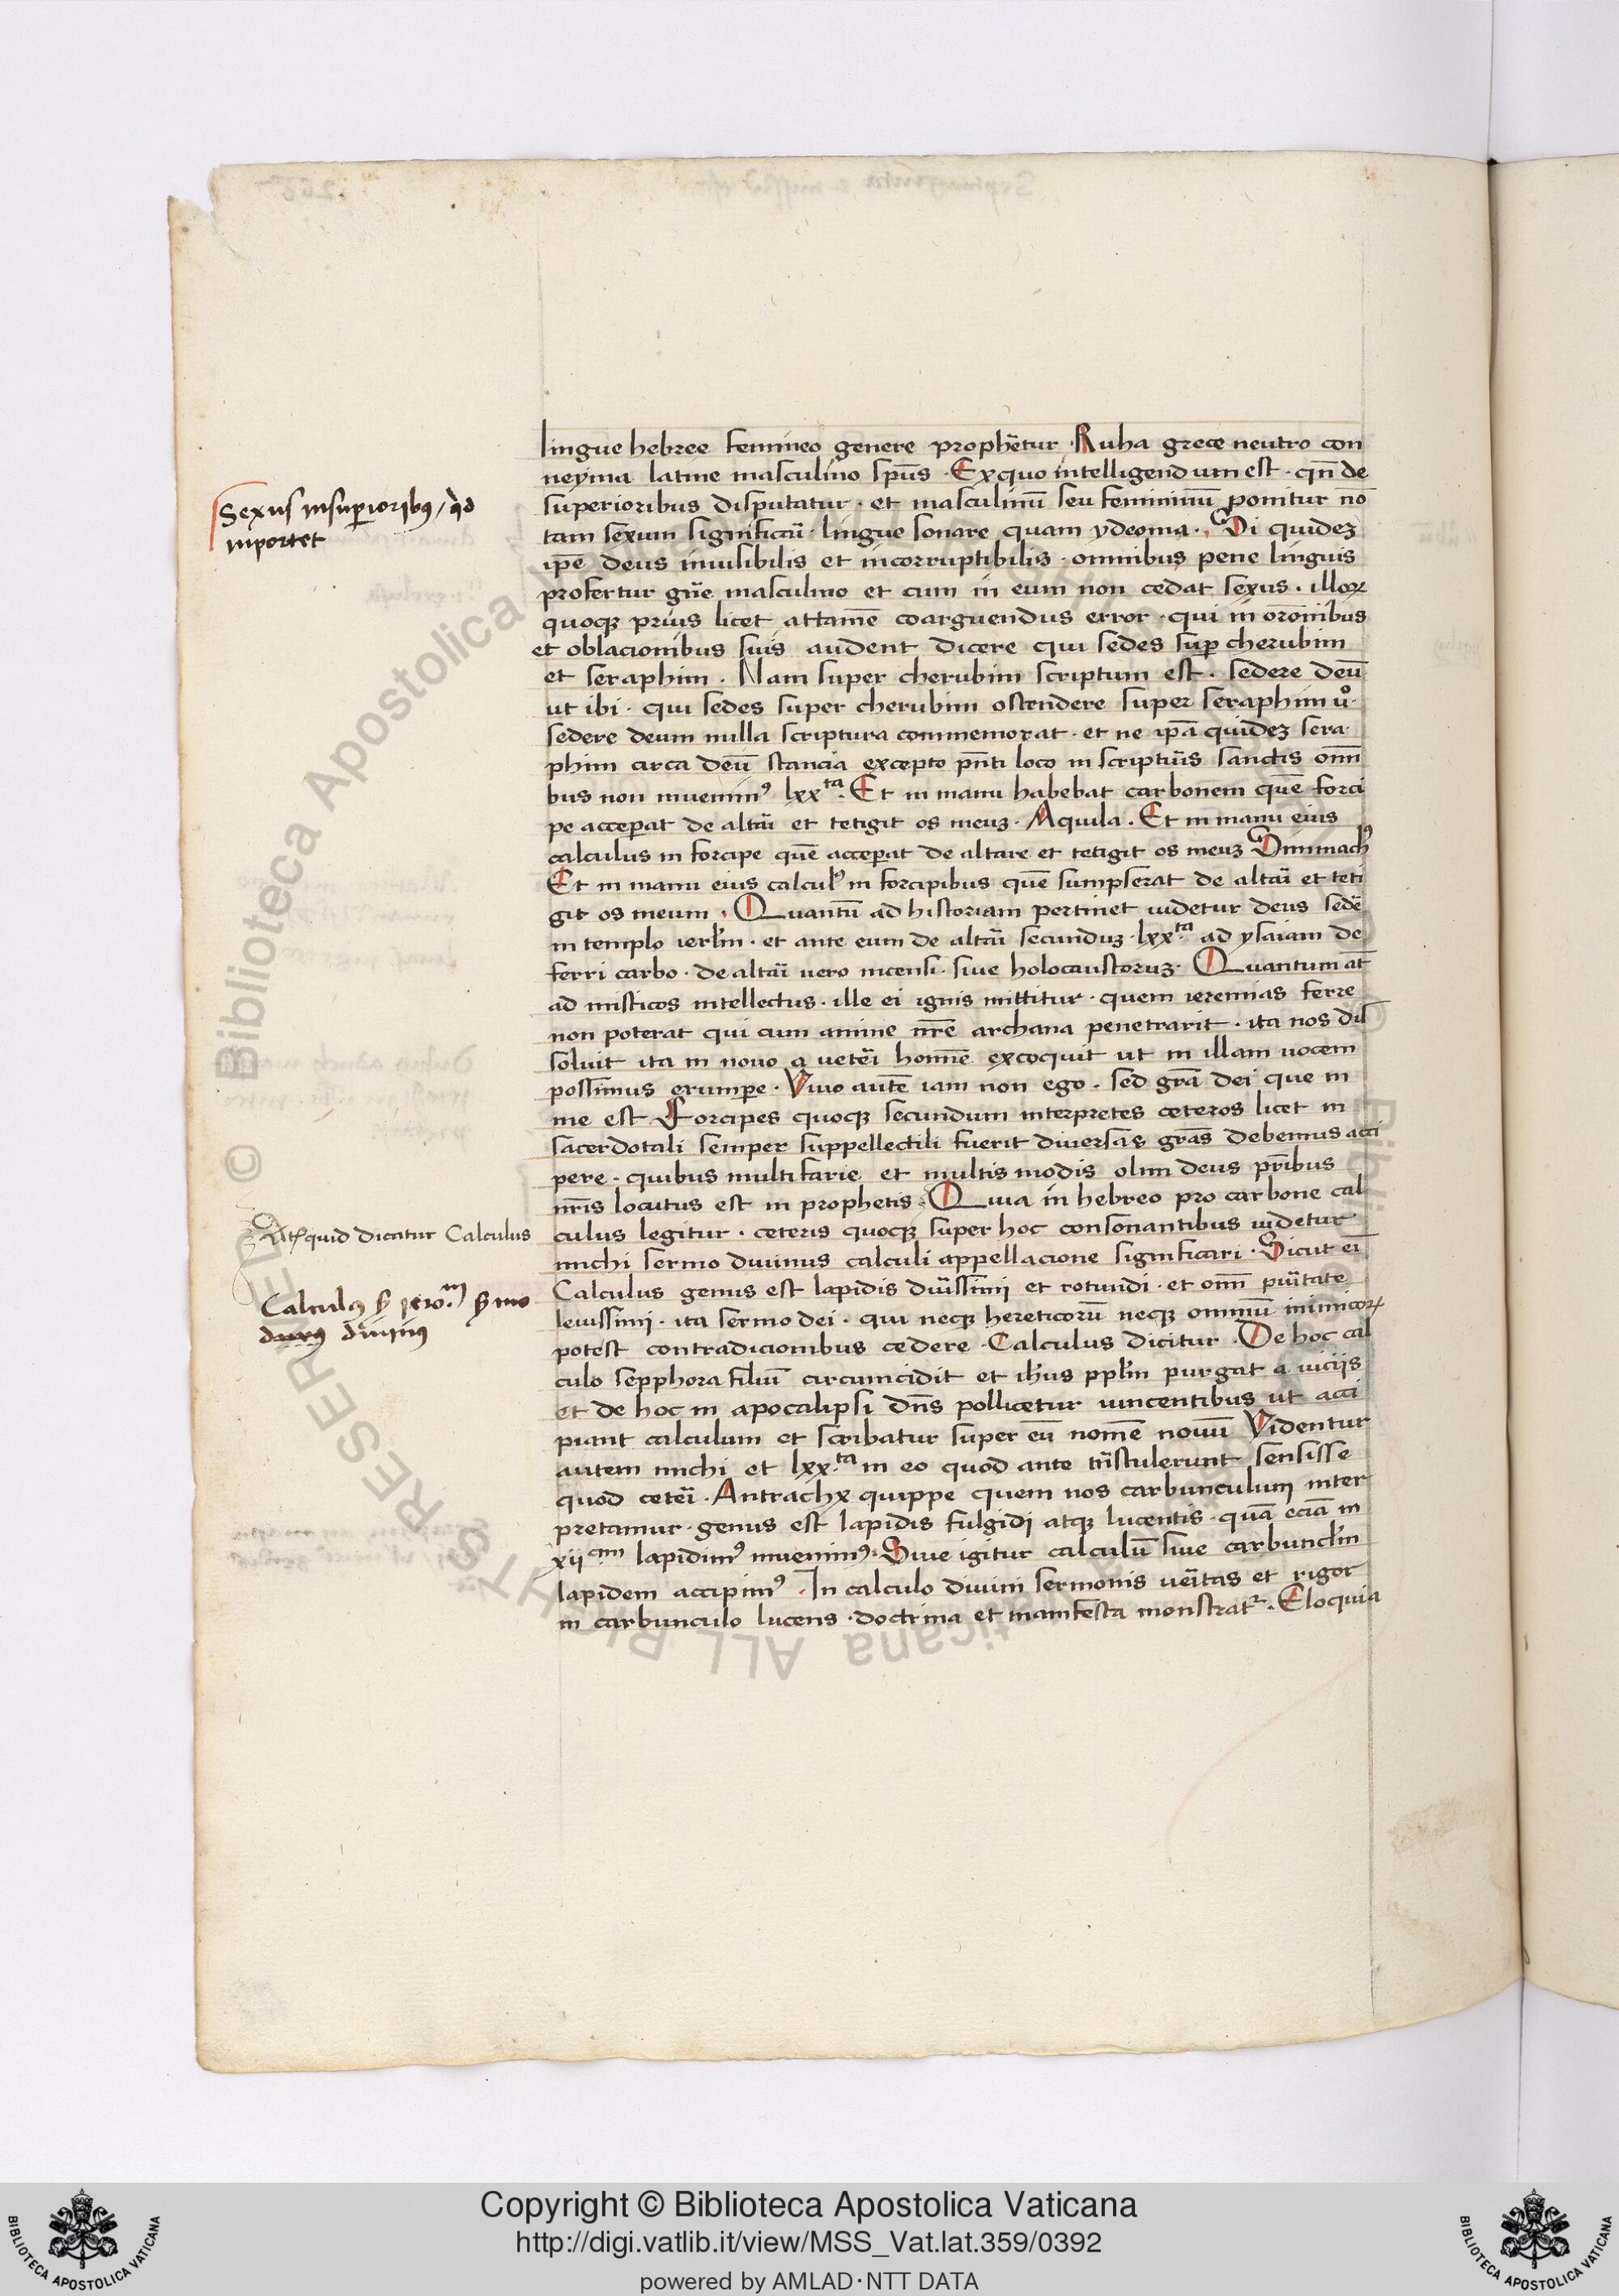 lingue hebree femineo genere prophẽtur · Ruha grece neutro con
neyma latine masculino sp̃us · Ex quo intelligendum est · qñ de
superioribus disputatur · et masculinũ seu femininũ ponitur nõ
tam sexum significãi lingue sonare quam ydeoma · Di quidez
ip̃e deus inuisibilis et incorruptibilis · omnibus pene linguis
profertur gñe masculino et cum in eum non cedat sexus · illoꝝ
quoqꝫ prius licet attamẽ coarguendus error · qui in orõnibus
et oblacionibus suis audent dicere qui sedes suꝑ cherubim
et seraphim . Nam super cherubim scriptum est · sedere deũ
ut ibi · qui sedes super cherubim ostendere super seraphim uº ·
sedere deum nulla scriptura commemorat · et ne ip̃a quidez sera
phim circa deũ stancia excepto pñti loco in scriptũis sanctis omñ
bus non inuenimꝰ lxxta · Et in manu habebat carbonem quẽ forci
pe acceꝑat de altãi et tetigit os meuꝫ · Aquila . Et in manu eius
calculus in forcipe quẽ acceꝑat de altare et tetigit os meuꝫ Simmachꝰ
Et in manu eius calculꝰ in forcipibus quẽ sumpserat de altãi et teti
git os meum . Quantũ ad historiam pertinet uidetur deus sedẽ
in templo ierľm · et ante eum de altãi secunduꝫ · lxx·ta ad ysaiam de
ferri carbo · de altãi vero incensi · siue holocaustoruꝫ · Quantum aũt
ad misticos intellectus · ille ei ignis mittitur · quem ieremias ferre
non poterat qui cum anime nrẽ archana penetrarit · ita nos dis
soluit ita in nouo a vetẽi homiẽ excoquit ut in illam uocem
possimus erumꝑe · Viuo autẽ iam non ego · sed grã dei que in
me est Forcipes quoqꝫ secundum interpretes ceteros licet in
sacerdotali semper suppellectili fuerit diuersas grãs debemus acci
pere · quibus multifarie et multis modis olim deus pr̃ibus
nr̃is locutus est in prophetis · Quia in hebreo pro carbone cal
culus legitur · ceteris quoqꝫ super hoc consonantibus uidetur
michi sermo diuinus calculi appellacione significari · Sicut eĩ
Calculus genus est lapidis dũissimi et rotundi · et omñ pũitate
leuissimi · ita sermo dei · qui neqꝫ hereticorũ neqꝫ omniũ inimicoꝝ
potest contradicionibus cedere · Calculus dicitur · De hoc cal
culo sepphora filiũ circumcidit et ih̃us ppľm purgat a viciis
et de hoc in apocalipsi dñs pollicetur uincentibus ut acci
piant calculum et scribatur super eũ nomẽ nouũ Videntur
autem michi et lxx·ta in eo quod ante trãstulerunt sensisse
quod cetẽi · Antrachx quippe quem nos carbunculum inter
pretamur · genus est lapidis fulgidi atqꝫ lucentis · quã eciã in
xij cim lapidimꝰ inuenimꝰ · Siue igitur calculũ siue carbuncľm
lapidem accipimꝰ · In calculo diuini sermonis ueĩtas et rigor
in carbunculo lucens · doctrina et manifesta monstratᷣ · Eloquia
Sexus in suꝑioribꝰ / qd
inportet
quid dicatur Calculus
Calculꝰ
diuinꝰ
Copyright © Biblioteca Apostolica Vaticana
http://digi.vatlib.it/view/MSS_Vat.lat.359/0392
powered by AMLAD·NTT DATA
BIBLIOTECA APOSTOLICA VATICANA
BIBLIOTECA APOSTOLICA VATICANA